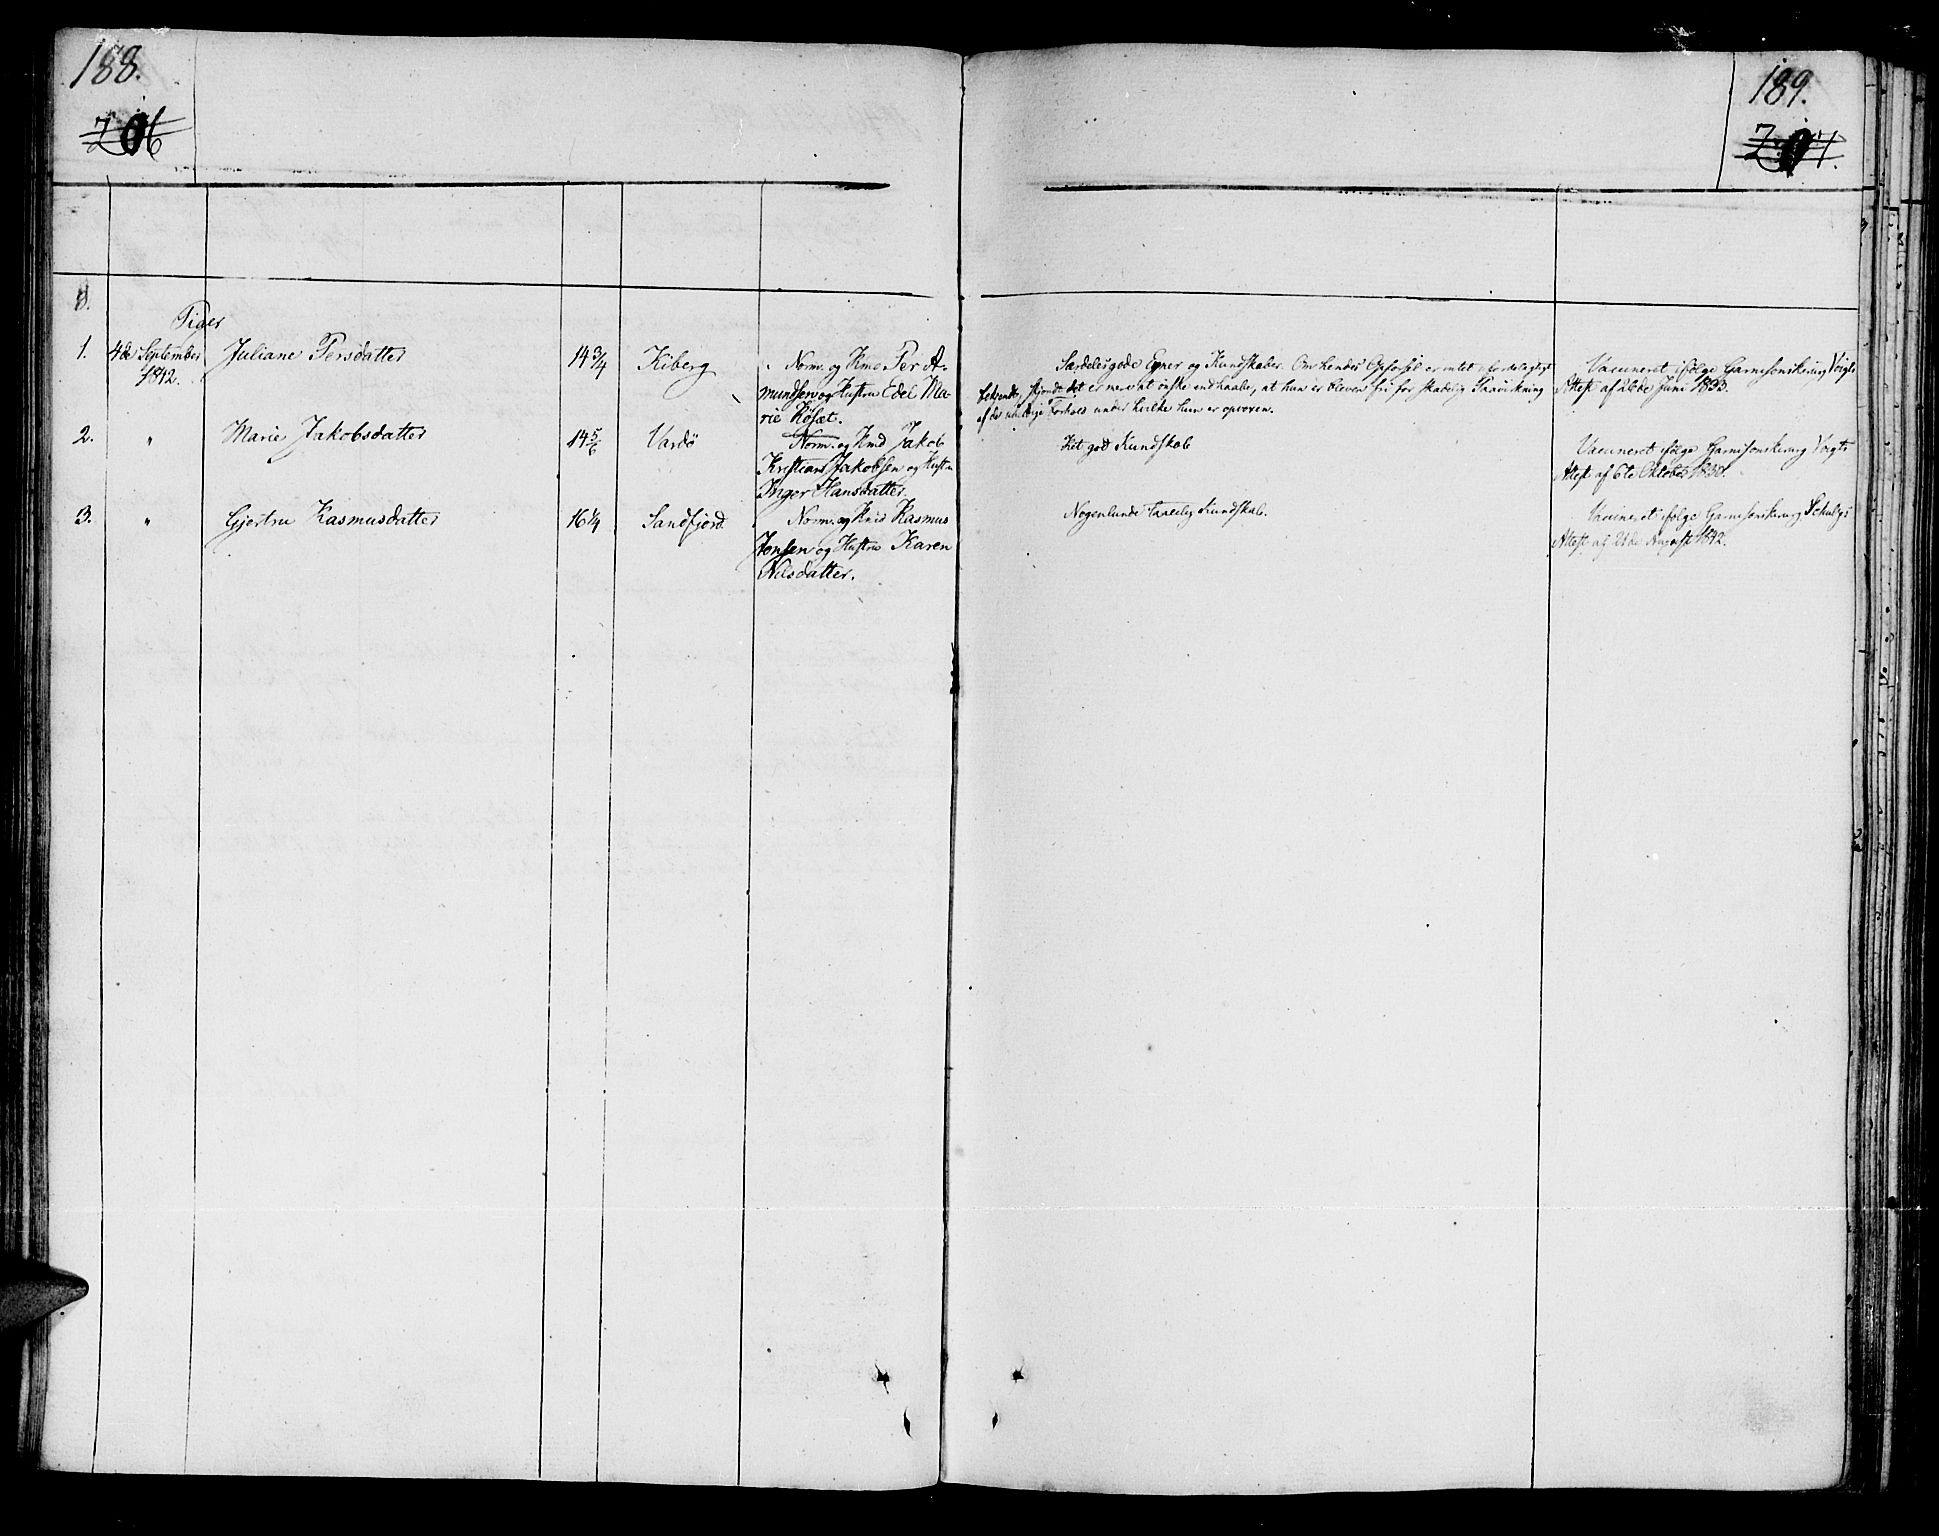 188.
206
189.
207.
Piger
1. 4de September 1842. Juliane Persdatter 14 3/4 Kiberg Norm. og Kme Per A-
mundsen og Hustru Edel Ma-
rie Kofæt.
Særdeles gode Evner og Kundskaber. Om hendes Opførsel er intet ufordelagtigt
bekjendt, skjøndt det er mere at ønske end haabe, at hun er bleven fri for skadelig Paavirkning
af de uheldige Forhold under hvilke hun er opvoxen.
Vaccineret ifølge Garnisonskirurg Voigts
Attest af 26de Juni 1833.
2. " Marie Jakobsdatter 14 5/6 Vardö Norm. og Kmd Jakob
Kristian Jakobsen og Hustru
Inger Hansdatter.
Ret god Kundskab
Vaccineret ifølge Garnisonskirurg Voigts
Attest af 6te Oktober 1830.
3. " Gjertru Rasmusdatter 16 1/4 Sandfjord Norm. og Kmd Rasmus
Jonsen og Hustru Karen
Nilsdatter.
Nogenlunde taalelig Kundskab.
Vaccineret ifølge Garnisonskirurg Schulzes
Attest af 21de August 1842.